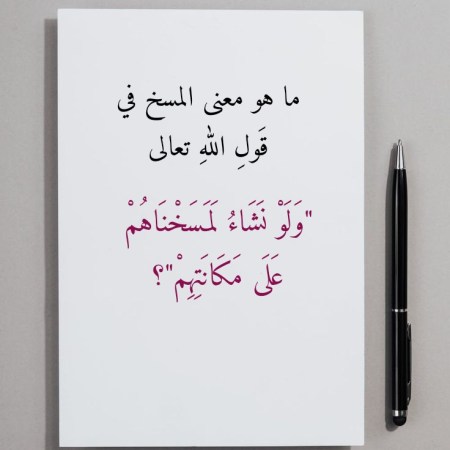 ما هو معنى المسخ في
قَولِ اللهِ تعالى
"وَلَوْ نَشَاءُ لَمَسَخْنَاهُمْ
عَلَى مَكَانَتِهِمْ"؟